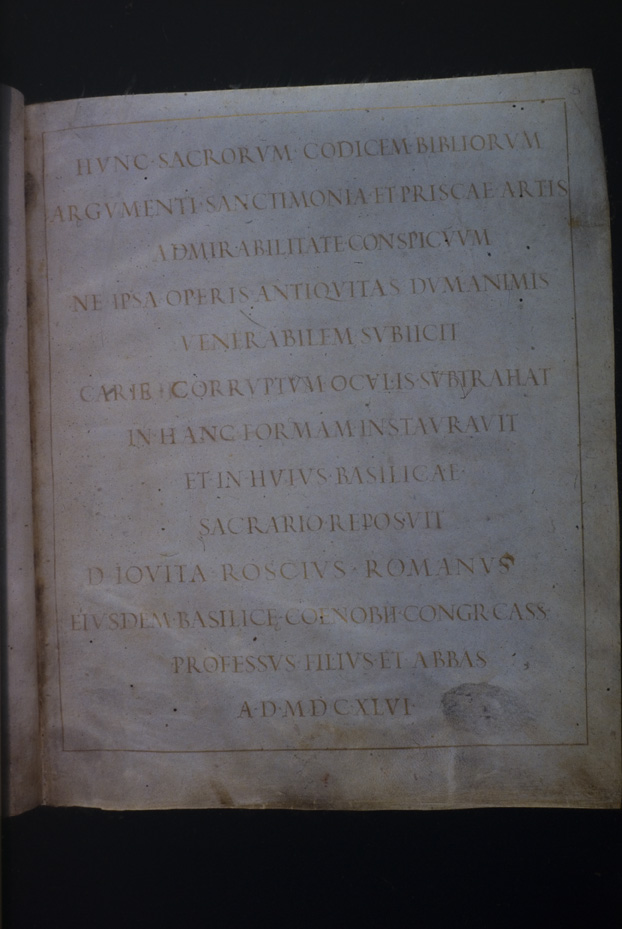 HVNC·SACRORVM·CODICEM·BIBLIORVM
ARGVMENTI·SANCTIMONIA·ET·PRISCAE·ARTIS
ADMIRABILITATE·CONSPICVVM
NE·IPSA·OPERIS·ANTIQVITAS DVM·ANIMIS
VENERABILEM·SVBIICIT
CARIE CORRVPTVM·OCVLIS·SVBTRAHAT
IN·HANC·FORMAM·INSTAVRAVIT
ET·IN·HVIVS·BASILICAE·
SACRARIO·REPOSVIT
D·IOVITA·ROSCIVS·ROMANVS
EIVSDEM·BASILICĘ·COENOBII·CONGR·CASS·
PROFESSVS·FILIVS·ET ABBAS
A·D·M·D·C·XLVI·